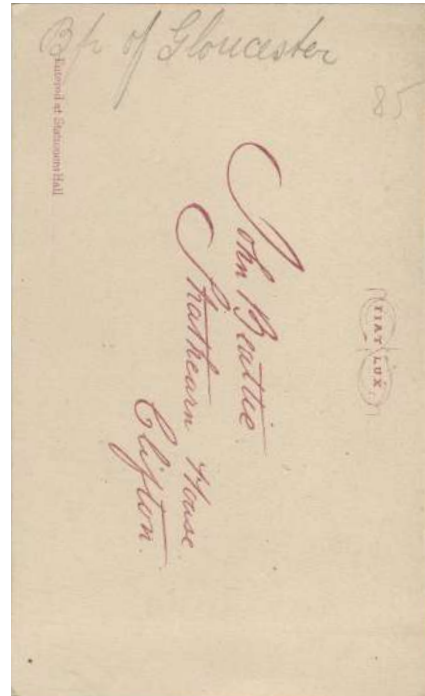 Bp of Gloucester
85
Entered at Stationers Hall
FIAT LUX
John Beattie
Strathearn House
Clifton.